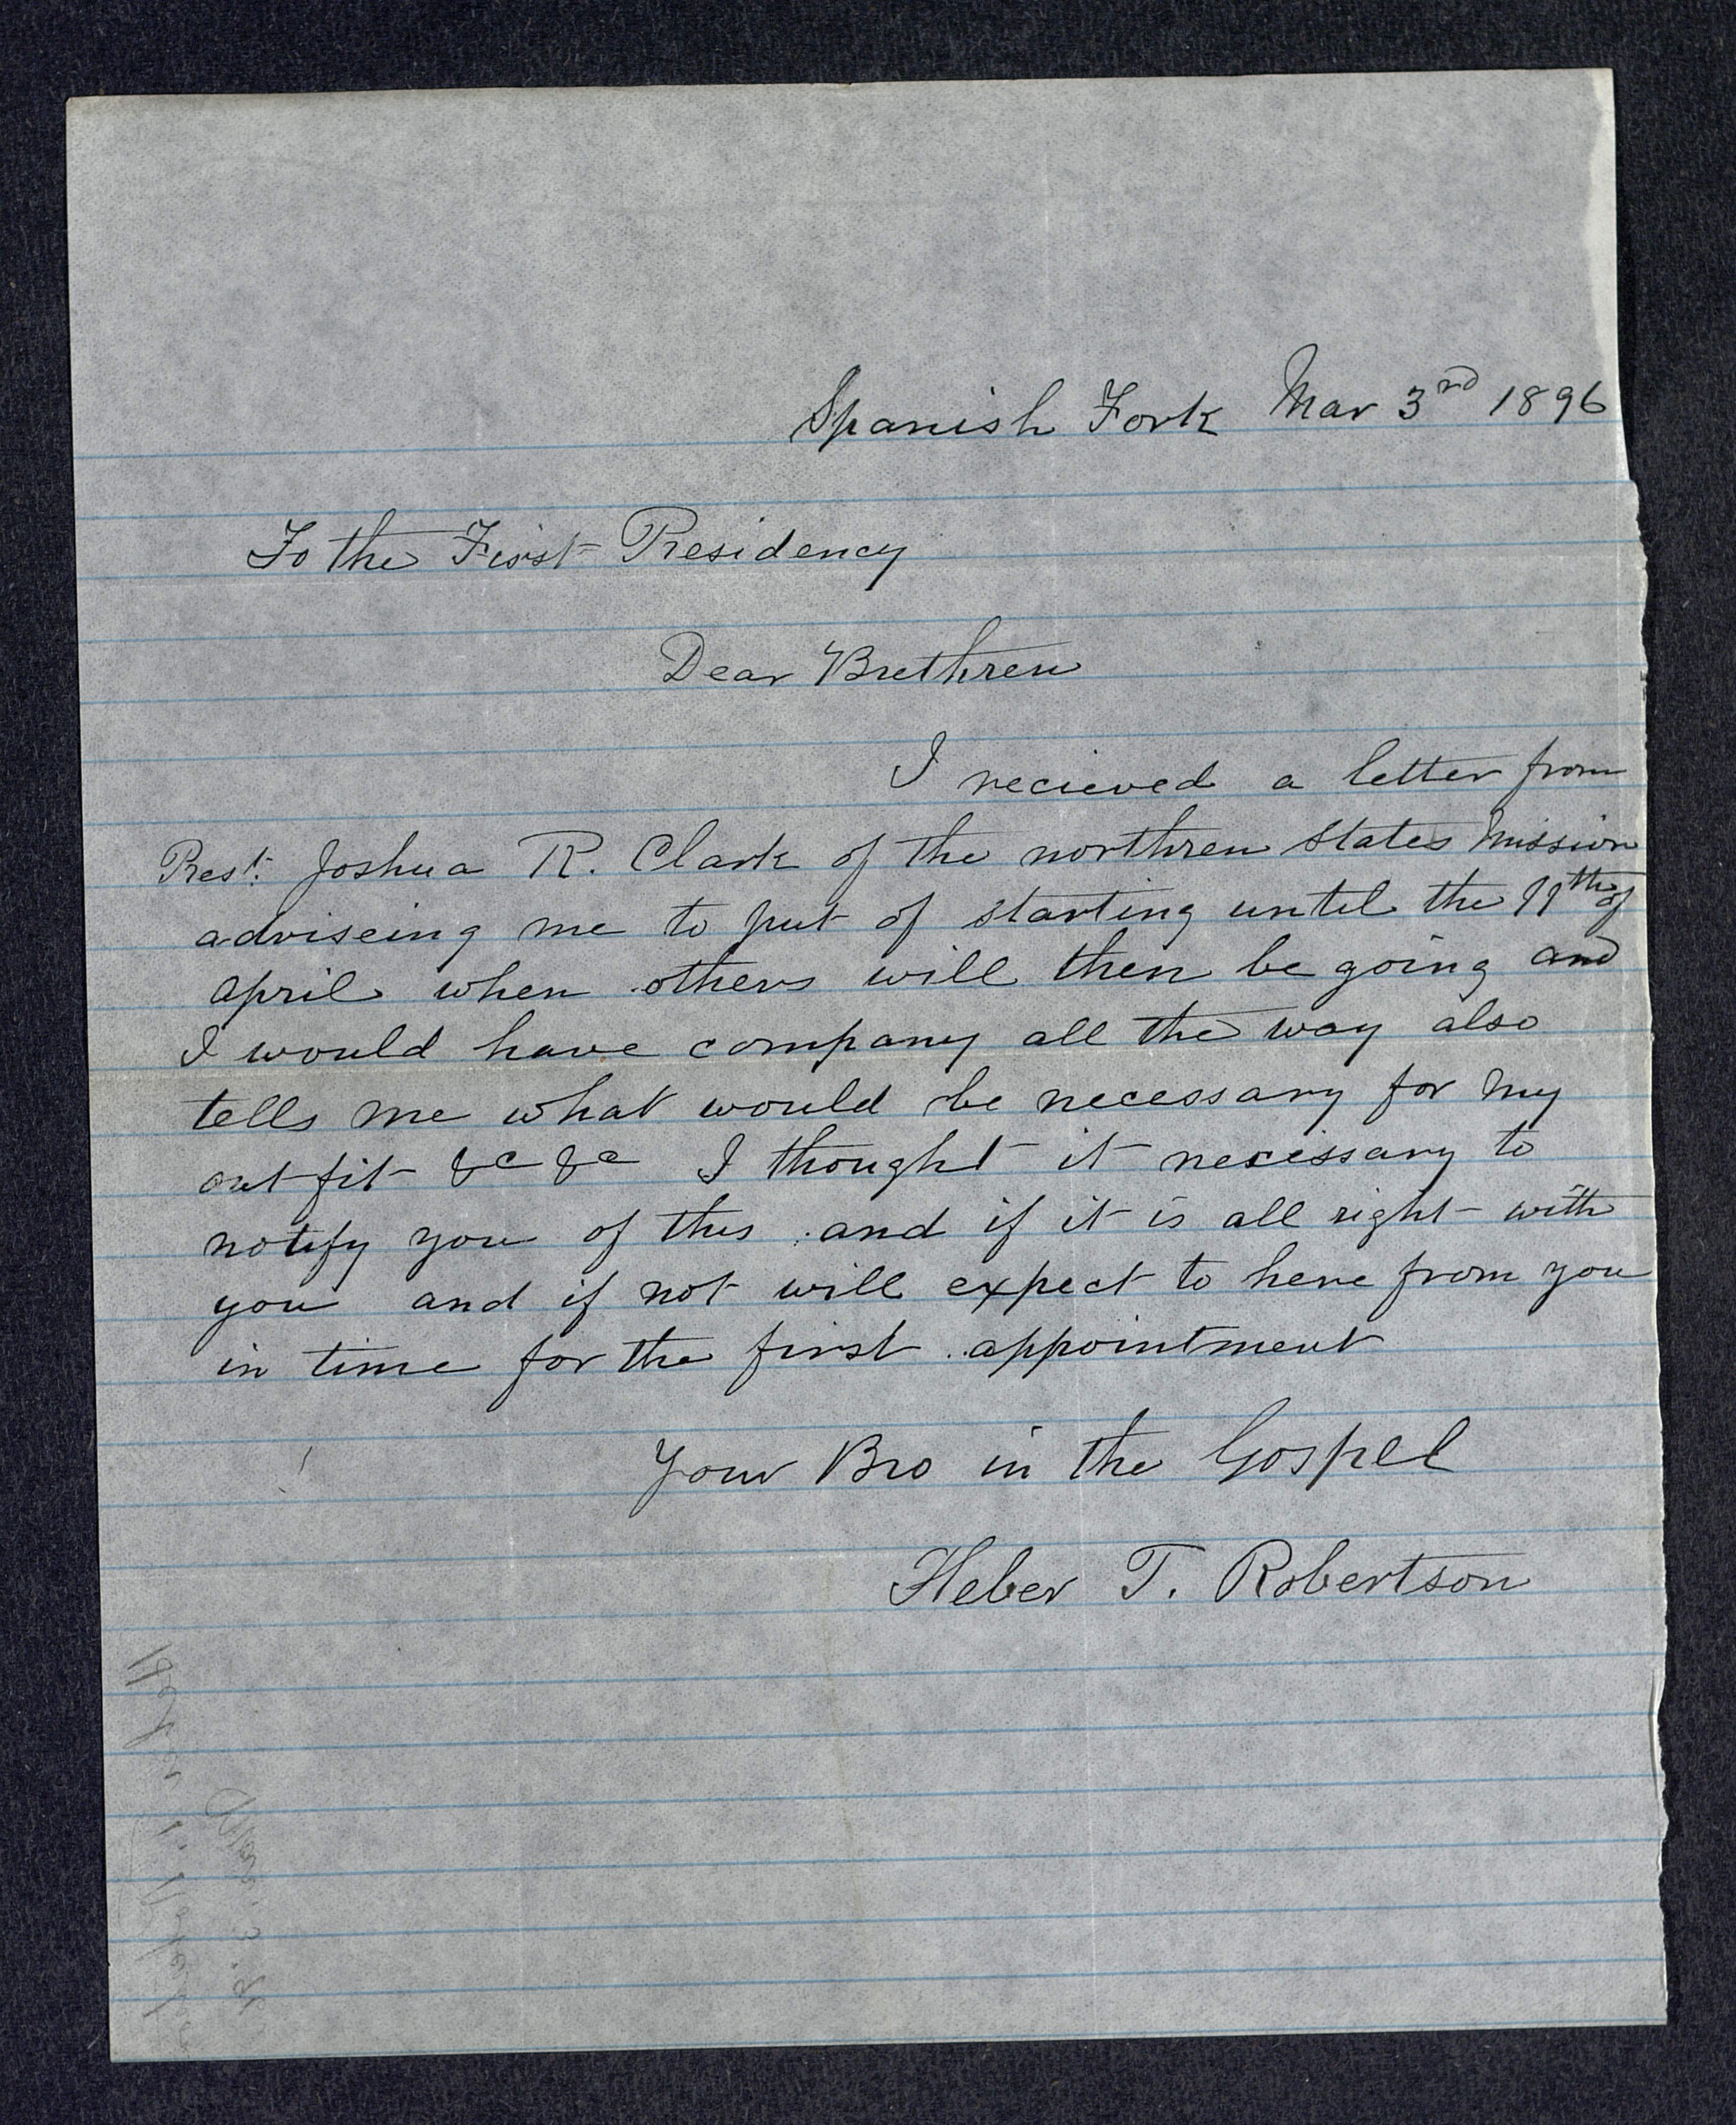 Spanish Fork Mar 3rd 1896
To the First Presidency
Dear Brethren
I recieved a letter from
Rest: Joshua R. Clark of the northren States Mission
adviseing me to put of starting until the 11th of
april when others will then be going and
I would have company all the way also
tells me what would be necessary for my
out fit &c &c I thought it necissary to
notify you of this and if it is all right with
you and if not will expect to here from you
in time for the first appointment
Your Bro in the Gospel
Heber T. Robertson